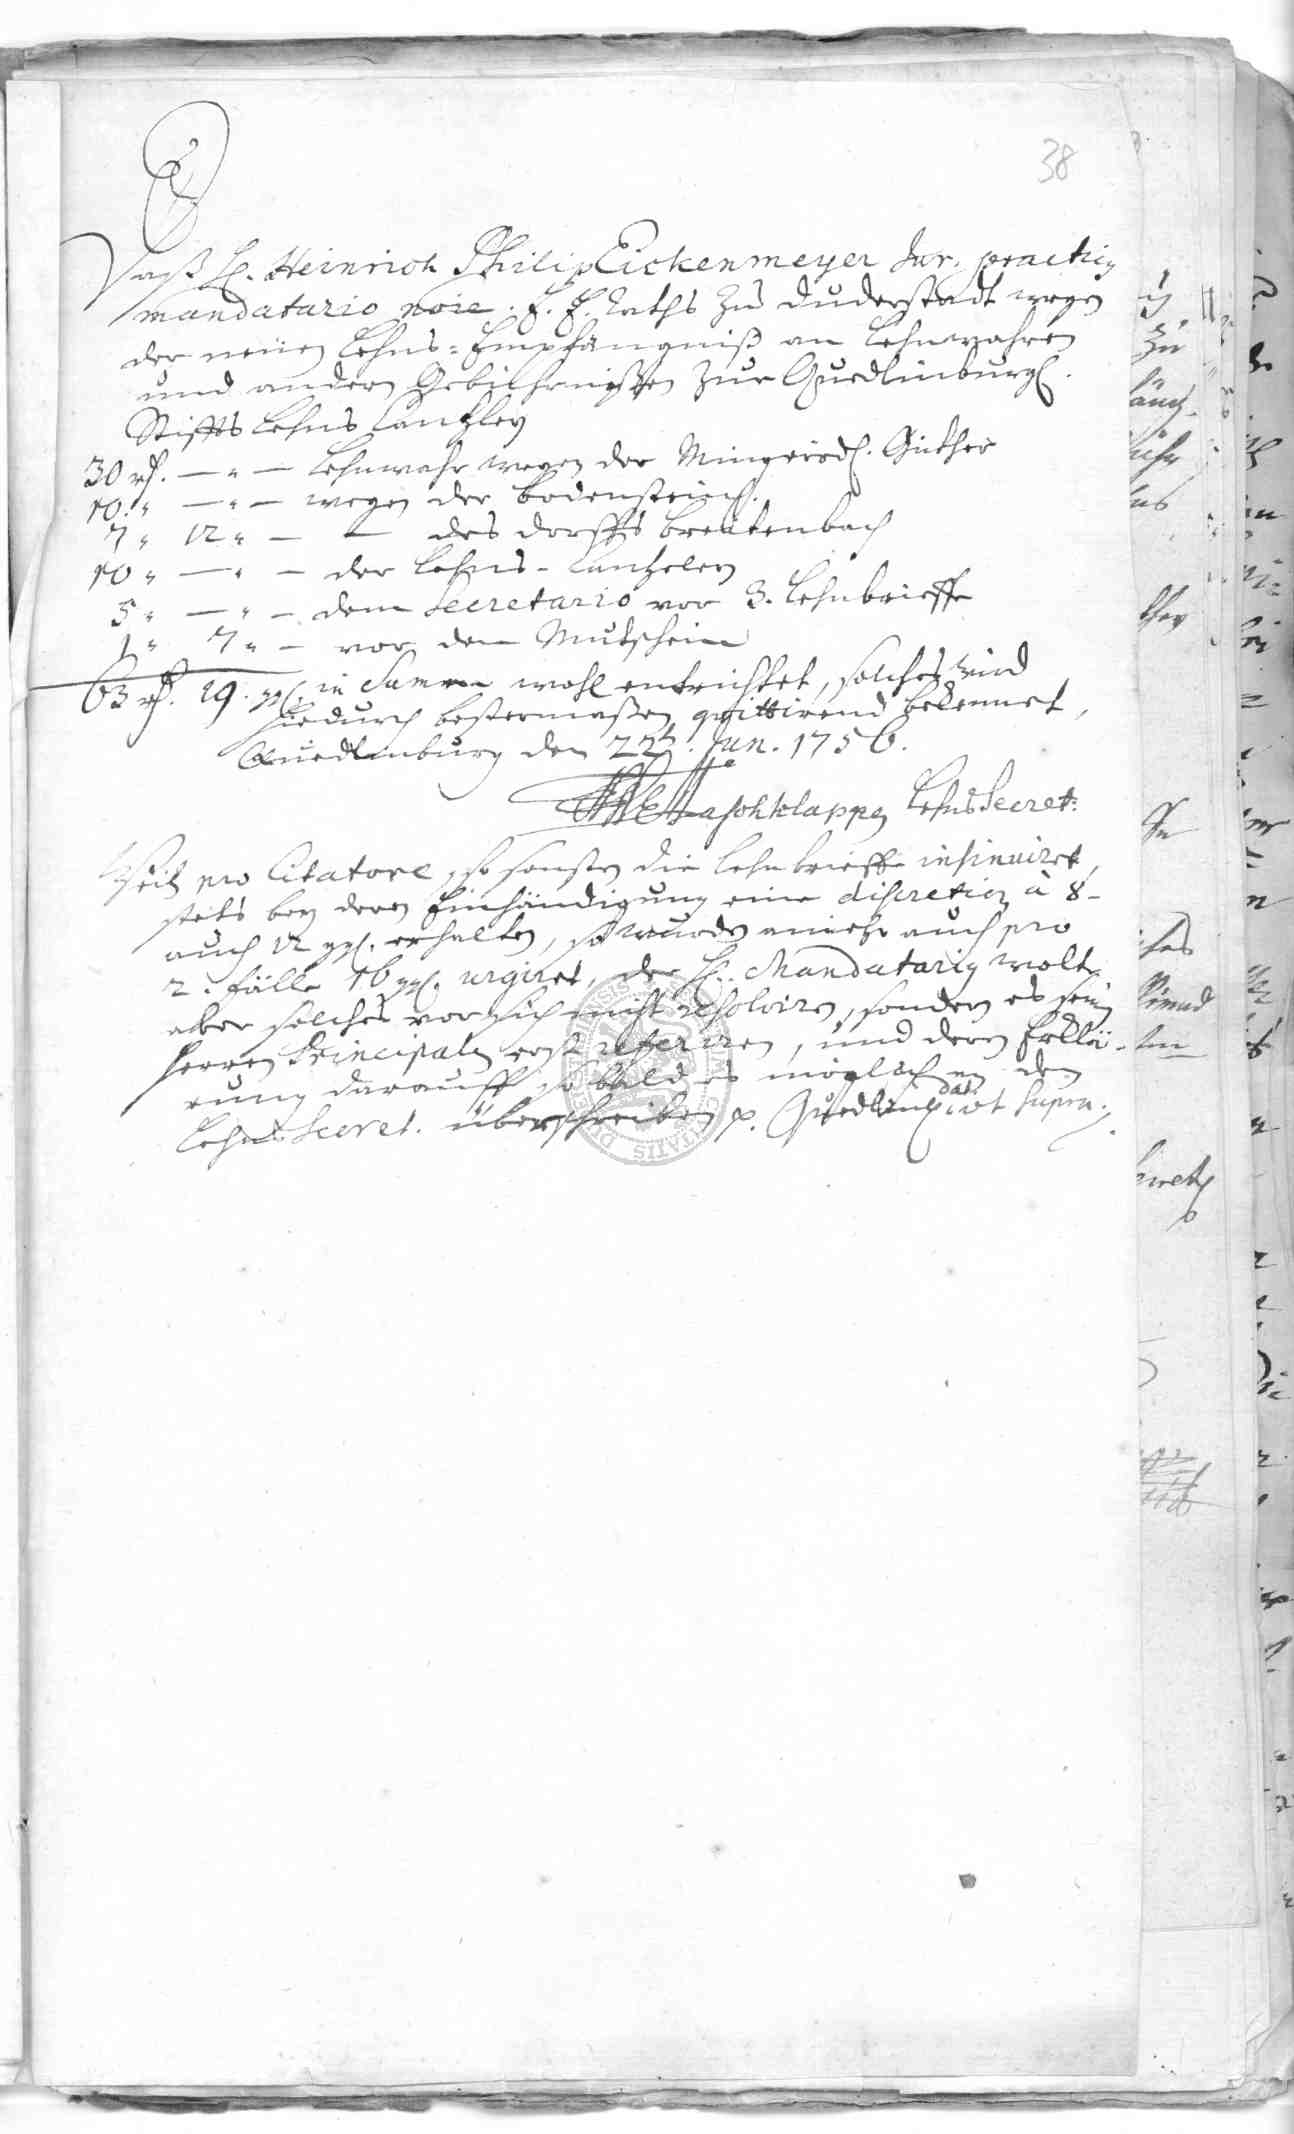 38
Daß H. Heinrich Philip Eickenmeyer Jur. practicus
mandatario noie. E. E. Raths zu Duderstadt wegen
der neuen Lehns-Empfängniß an Lehnwahren
und andern Gebührnißen zur Quedlinburg.
Stiffts Lehns Cantzley
30 rh. — " — Lehnwahr wegen der Mingerod. Güther
10 " — " — wegen der Bodenstein.
7 " 12 " — — des Dorffs Breitenbach
10 " — " — der Lehns-Cantzeley
5 " — " — dem Secretario vor 3. Lehnbrieffe
1 " 7 " — vor den Muthschein
63 rh. 19. ggl. in Summa wohl entrichtet, solches wird
hiedurch bestermaßen quittirend bekennet,
Quedlinburg den 22t. Jun. 1756.
LehnsSecret:
Weil pro Citatore, so sonsten die Lehnbrieffe insinuiret,
stets bey deren Einhändigung eine discretion à 8-
auch 12 ggl. erhalten, so wurden anietzo auch pro
2. Fälle 16 ggl. urgiret, der H. Mandatarius wolte
aber solches vor sich nicht resolviren, sondern es seinen
Herren Principalen erst referiren, und deren Erklä-
rung darauff so bald es möglich an den
Lehns Secret. überschreiben p. Quedlinb. dat. ut supra.